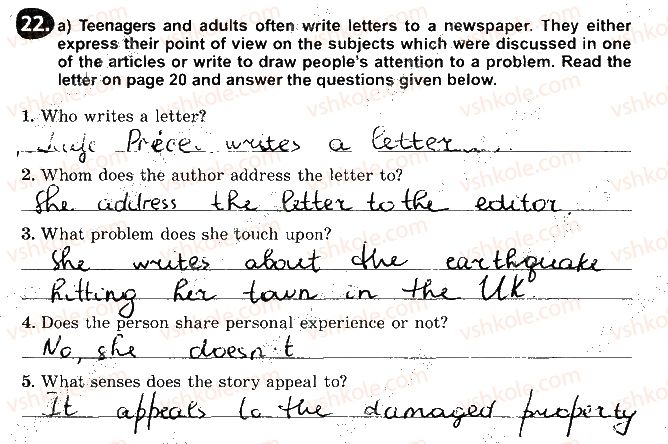 22. a) Teenagers and adults often write letters to a newspaper. They either
express their point of view on the subjects which were discussed in one
of the articles or write to draw people's attention to a problem. Read the
letter on page 20 and answer the questions given below.
1. Who writes a letter?
Price writes a letter.
2. Whom does the author address the letter to?
She address the letter to the editor.
3. What problem does she touch upon?
She writes about the earthquake
hitting her town in the UK
4. Does the person share personal experience or not?
No, she doesn't
5. What senses does the story appeal to?
It appeals to the damaged property